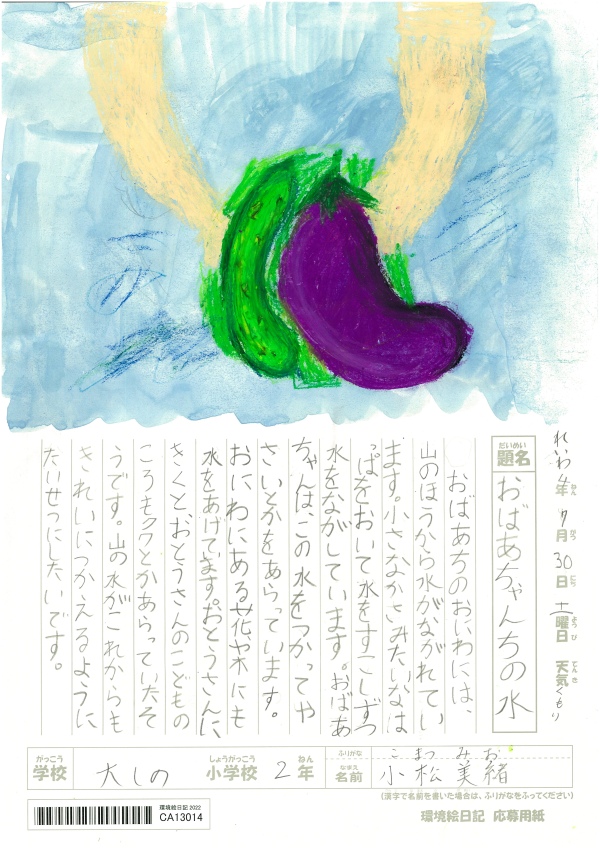 れいわ4年ねん7月がつ30日にち土曜日ようび 天気てんきくもり
題名だいめい おばあちゃんちの水
おばあちのおにわには、
山のほうから水がながれてい
ます。小さなかさみたいなは
っぱをおいて水をすこしずつ
水をながしています。おばあ
ちゃんは、この水をつかってや
さいとかをあらっています。
おにわにある花や木にも
水をあげています。おとうさんに
きくと、おとうさんのこどもの
ころもクワとかあらっていたそ
うです。山の水がこれからも
きれいにつかえるように
たいせつにしたいです。
がっこう しょうがっこう ねん
学校 大しの 小学校 2年
ふりがな こまつ みお
なまえ
名前 小松 美緒
(漢字で名前を書いた場合は、ふりがなをふってください)
環境絵日記 2022
CA13014
環境絵日記 応募用紙